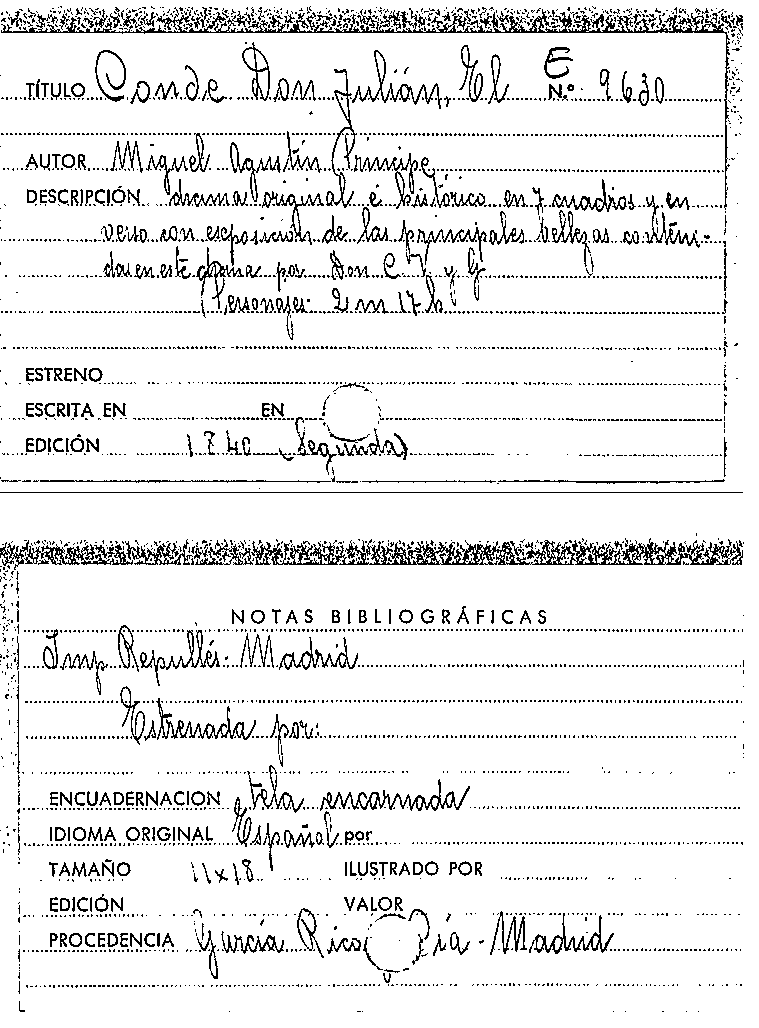 TÍTULO Conde Don Julián, El E N.º 9630
AUTOR Miguel Agustín Príncipe
DESCRIPCIÓN drama original é histórico en 7 cuadros y en
verso con esposición de las principales bellezas conteni-
das en este drama por Don C. V. y G
(Personajes: 2 m 17 h
ESTRENO
ESCRITA EN EN
EDICIÓN 1840 (Segunda)
NOTAS BIBLIOGRÁFICAS
Imp Repullés. Madrid
Estrenada por:
ENCUADERNACION tela encarnada
IDIOMA ORIGINAL Español por
TAMAÑO 11x18 ILUSTRADO POR
EDICIÓN VALOR
PROCEDENCIA García Rico Cía - Madrid